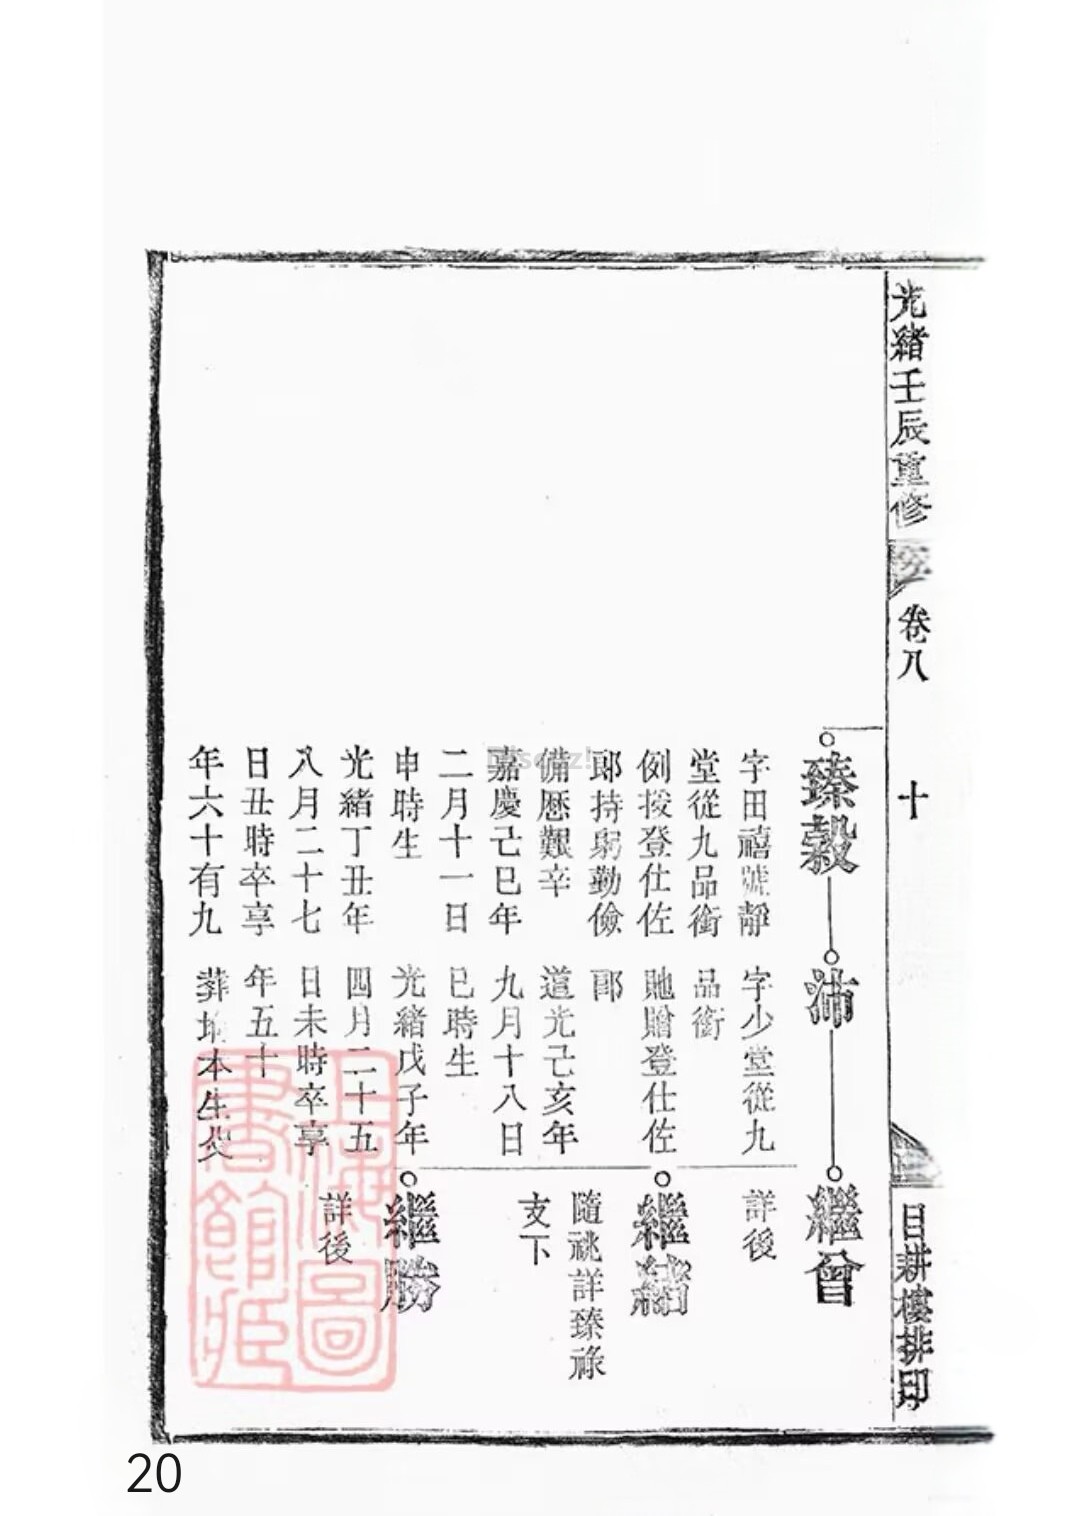 光緒壬辰重修
卷八
十
目耕樓排印
臻穀
字田禧號靜
堂從九品銜
例授登仕佐
郎持躬勤儉
備歷艱辛
嘉慶己巳年
二月十一日
申時生
光緒丁丑年
八月二十七
日丑時卒享
年六十有九
沛
字少堂從九
品銜
貤贈登仕佐
郎
道光己亥年
九月十八日
巳時生
光緒戊子年
四月二十五
日未時卒享
年五十
葬坿本生父
繼曾
詳後
繼緒
隨祧詳臻祿
支下
繼勝
詳後
上海圖
書館藏
20